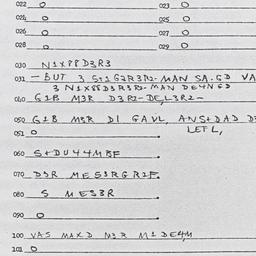 022 O 023 O
024 O 025 O
026 O 027 O
028 O 029 O
030 N1X88D3R3
031 - BUT 3 S+1G2R3R2-MAN SA.GD VA
3 N1X88D3R3R2-MAN DE4NGD
040 G1B M3R D3R2-DE,L3R2-
050 G1B M3R D1 GAVL, ANS+DAD D3
LETL,
051 O
060 S+DU44MBF
070 D3R MES3RGR1F
080 S MES3R
090 O
100 VAS MAXD M3R M1DE4M
101 O